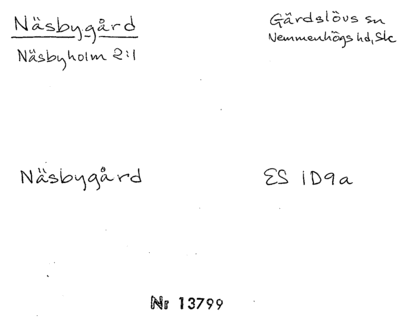 Näsbygård
Gärdslövs sn
Näsbyholm 2:1
Vemmenhögs hd, Sk
Näsbygård
ES 1D9a
Nr 13799